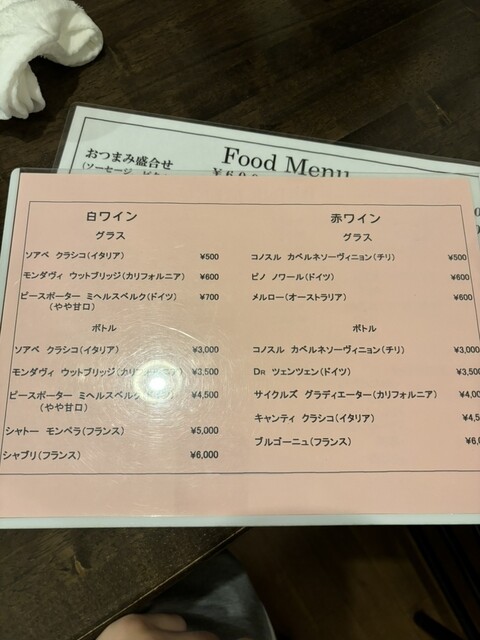 おつまみ盛合せ
Food Menu
(ソーセージ
白ワイン
グラス
ソアベ クラシコ(イタリア) ¥500
モンダヴィ ウットブリッジ(カリフォルニア) ¥600
ピースポーター ミヘルスベルク(ドイツ) ¥700
(やや甘口)
ボトル
ソアベ クラシコ(イタリア) ¥3,000
モンダヴィ ウットブリッジ(カリフォルニア) ¥3,500
ピースポーター ミヘルスベルク(ドイツ) ¥4,500
(やや甘口)
シャトー モンペラ(フランス) ¥5,000
シャブリ(フランス) ¥6,000
赤ワイン
グラス
コノスル カベルネソーヴィニョン(チリ) ¥500
ピノ ノワール(ドイツ) ¥600
メルロー(オーストラリア) ¥600
ボトル
コノスル カベルネソーヴィニョン(チリ) ¥3,000
DR ツェンツェン(ドイツ) ¥3,500
サイクルズ グラディエーター(カリフォルニア)
キャンティ クラシコ(イタリア)
ブルゴーニュ(フランス)